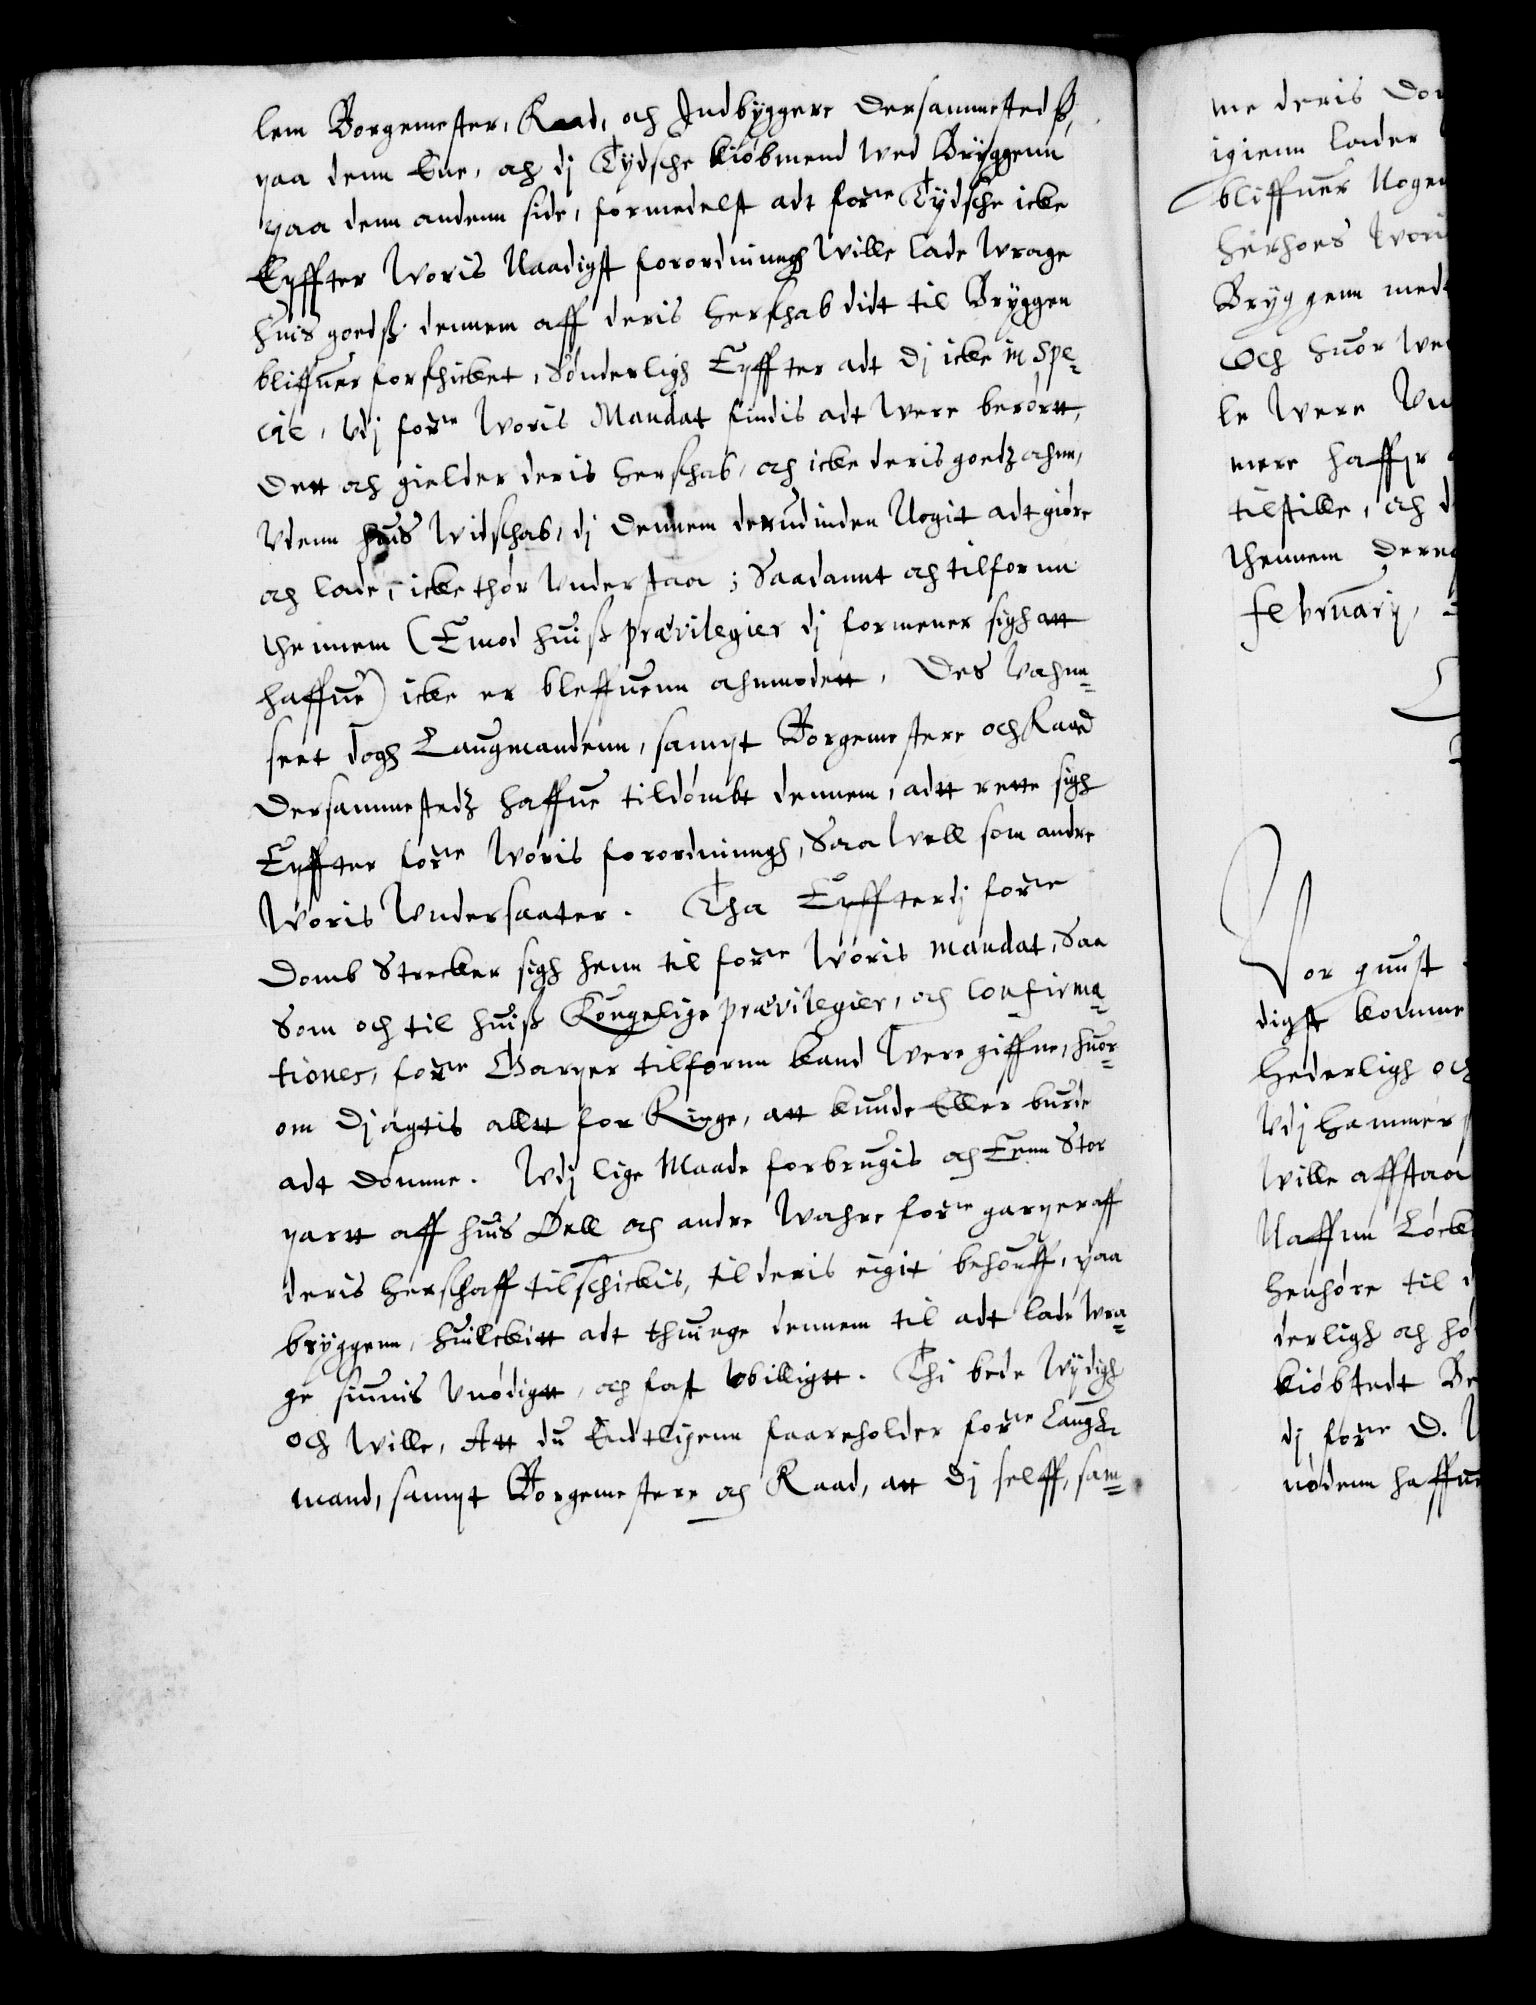 lem Borgemester, Raad, och Indbyggere dersammestedß,
paa denn Ene, och dj Tydsche kiøbmend wed Bryggenn
paa denn andenn side, formedelst adt forne Tydsche icke
Eyffter Woris Naadigst forordningh Wille lade Wrage
huis goedß dennem aff deris herskab didt til Bryggen
bliffuer forskicket, Sønderligh Eyffter adt dj icke in spe-
cie, Vdj forne Woris Mandat findis adt Were berørtt,
Dett och gielder deris herskab, och icke deris goedz ahnn,
Vdenn huis Widskab, dj dennem derudinden Nogit adt giøre
och lade, icke thør Understaa; Saadannt och tilfornn
thennem (Emod huiß prævilegier dj formener sigh att
haffue) icke er bleffuenn ahnmodett, Des Vahnn-
seet dogh Laugmandenn, sampt Borgemestere och Raad
dersammestedz haffue tildømbt dennem, adtt rette sigh
Eyffter forne Woris forordningh, Saa Well som andre
Woris Undersaater. Tha Eyffterdj forne
Domb Strecker sigh henn til forne Woris mandat, Saa
Som och til huiß Kongelige prævilegier, och Confirma-
tioner, forne Garper tilfornn kand Were giffne, huor-
om dj agtis alltt for Ringe, att kunde Eller burde
adt dømme. Vdj lige Maade forbrugis och Enn Stor
partt aff huis Øell och andre Wahre forne garper aff
deris herskaff tilschickis, til deris eigit behouff, paa
bryggenn, huilckitt adt thuinge dennem til adt lade Wra-
ge siunis Vnødigtt, och fast Vbilligtt. Thi bede Wij digh
och Wille, Att du Endtligenn faareholder forne Laugh-
mand, sampt Borgemestere och Raad, att dj selff, sam-
me deris Do
igienn lader
bliffuer Nogen
herhoes Wori
Bryggenn med
Och huor We
le Were Vn
mere haffr
tilstille, och d
thennem dere
februarij,
Vor gunst
digst komme
Hederligh och
Vdj hammer
Wille affstaa
Naffnn Løck
henhøre til d
derligh och hø
kiøbstedt Be
dj forne D.
nødenn haffue